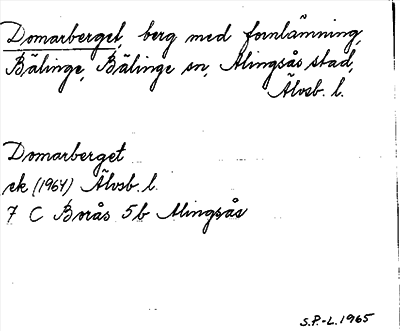 Domarberget, berg med fornlämning,
Bälinge, Bälinge sn, Alingsås stad,
Älvsb. l.
Domarberget
ek (1964) Älvsb. l.
7 C Borås 5b Alingsås
S.P.-L. 1965